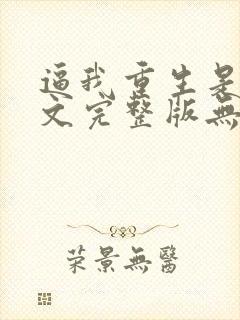 逼我重生是
文完整版無
荣景無醫